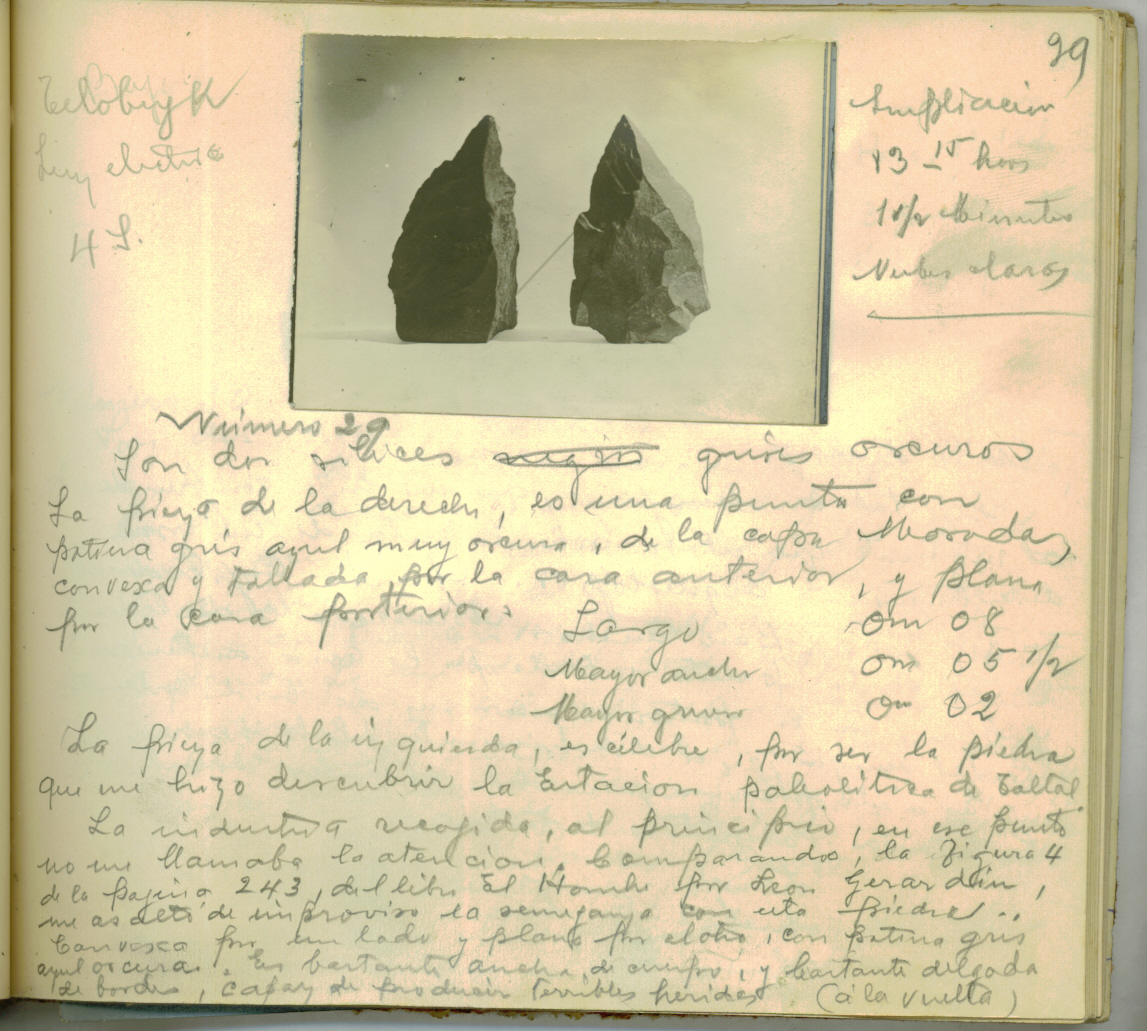 29
Luz electrica
4 S.
Ampliacion
13 15 horas
1 1/2 Minutos
Nubes claras
Número 29
Son dos silices negros grises oscuros
La pieza de la derecha, es una punta con
patina gris azul muy oscura, de la capa Morada,
convexa y tallada por la cara anterior, y plana
por la cara posterior.
Largo 0m 08
Mayor ancho 0m 05 1/2
Mayor grueso 0m 02
La pieza de la izquierda, es célebre, por ser la piedra
que me hizo descubrir la Estacion paleolitica de Taltal
La industria recogida, al principio, en ese punto
no me llamaba la atencion. Comparando, la Figura 4
de la pagina 243, del libro El Hombre por Leon Gerardin,
me asaltó de improviso la semejanza con esta piedra..
Convexa por un lado y plana por el otro, con patina gris
azul oscura. Es bastante ancha de cuerpo, y bastante delgada
de bordes, capaz de producir terribles heridas (á la vuelta)